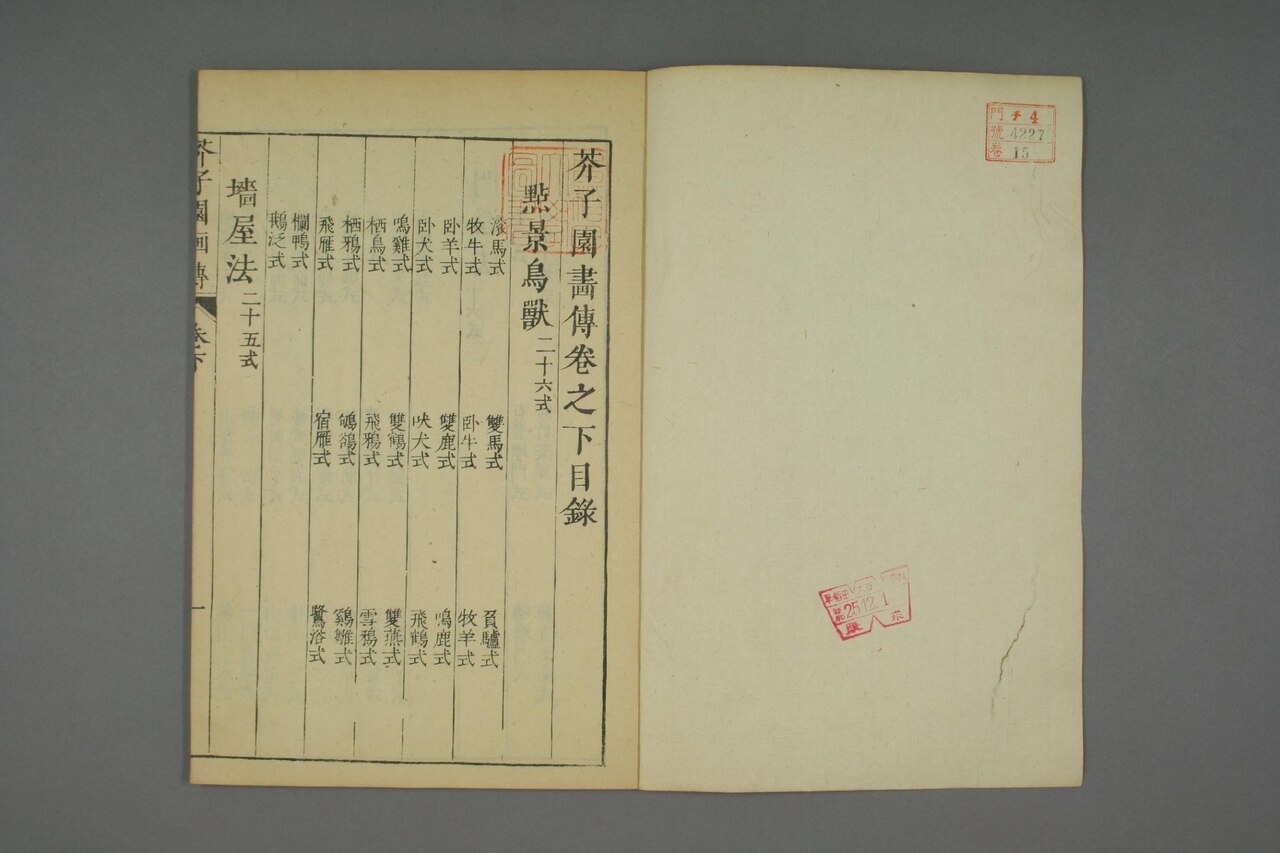 門 チ 4
號 4227
卷 15
25.12.1
芥子園畵傳卷之下目錄
點景鳥獸 二十六式
浴馬式 雙馬式 負驢式
牧牛式 卧牛式 牧羊式
卧羊式 雙鹿式 鳴鹿式
卧犬式 吠犬式 飛鶴式
鳴雞式 雙鶴式 雙燕式
栖鳥式 飛鴉式 雪鴉式
栖鴉式 鴝鵒式 鷄雛式
飛雁式 宿雁式 鷖浴式
欄鴨式
鵝泛式
墻屋法 二十五式
芥子園画傳 卷下 一